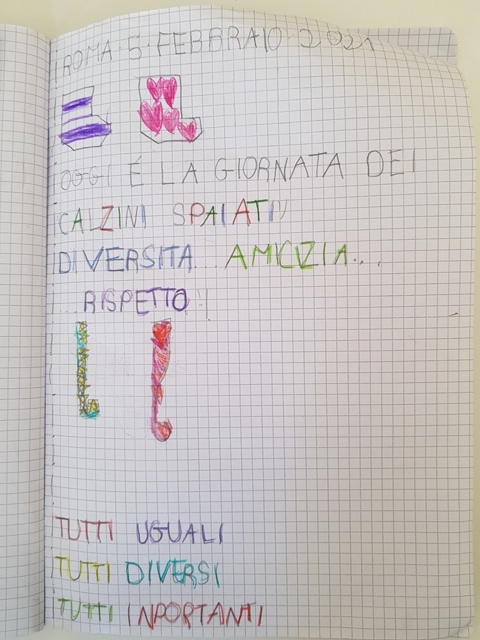 ROMA 5 FEBBRAIO 2021
OGGI É LA GIORNATA DEI
CALZINI SPAIATI
DIVERSITA... AMICIZIA...
RISPETTO!
TUTTI UGUALI
TUTTI DIVERSI
TUTTI INPORTANTI